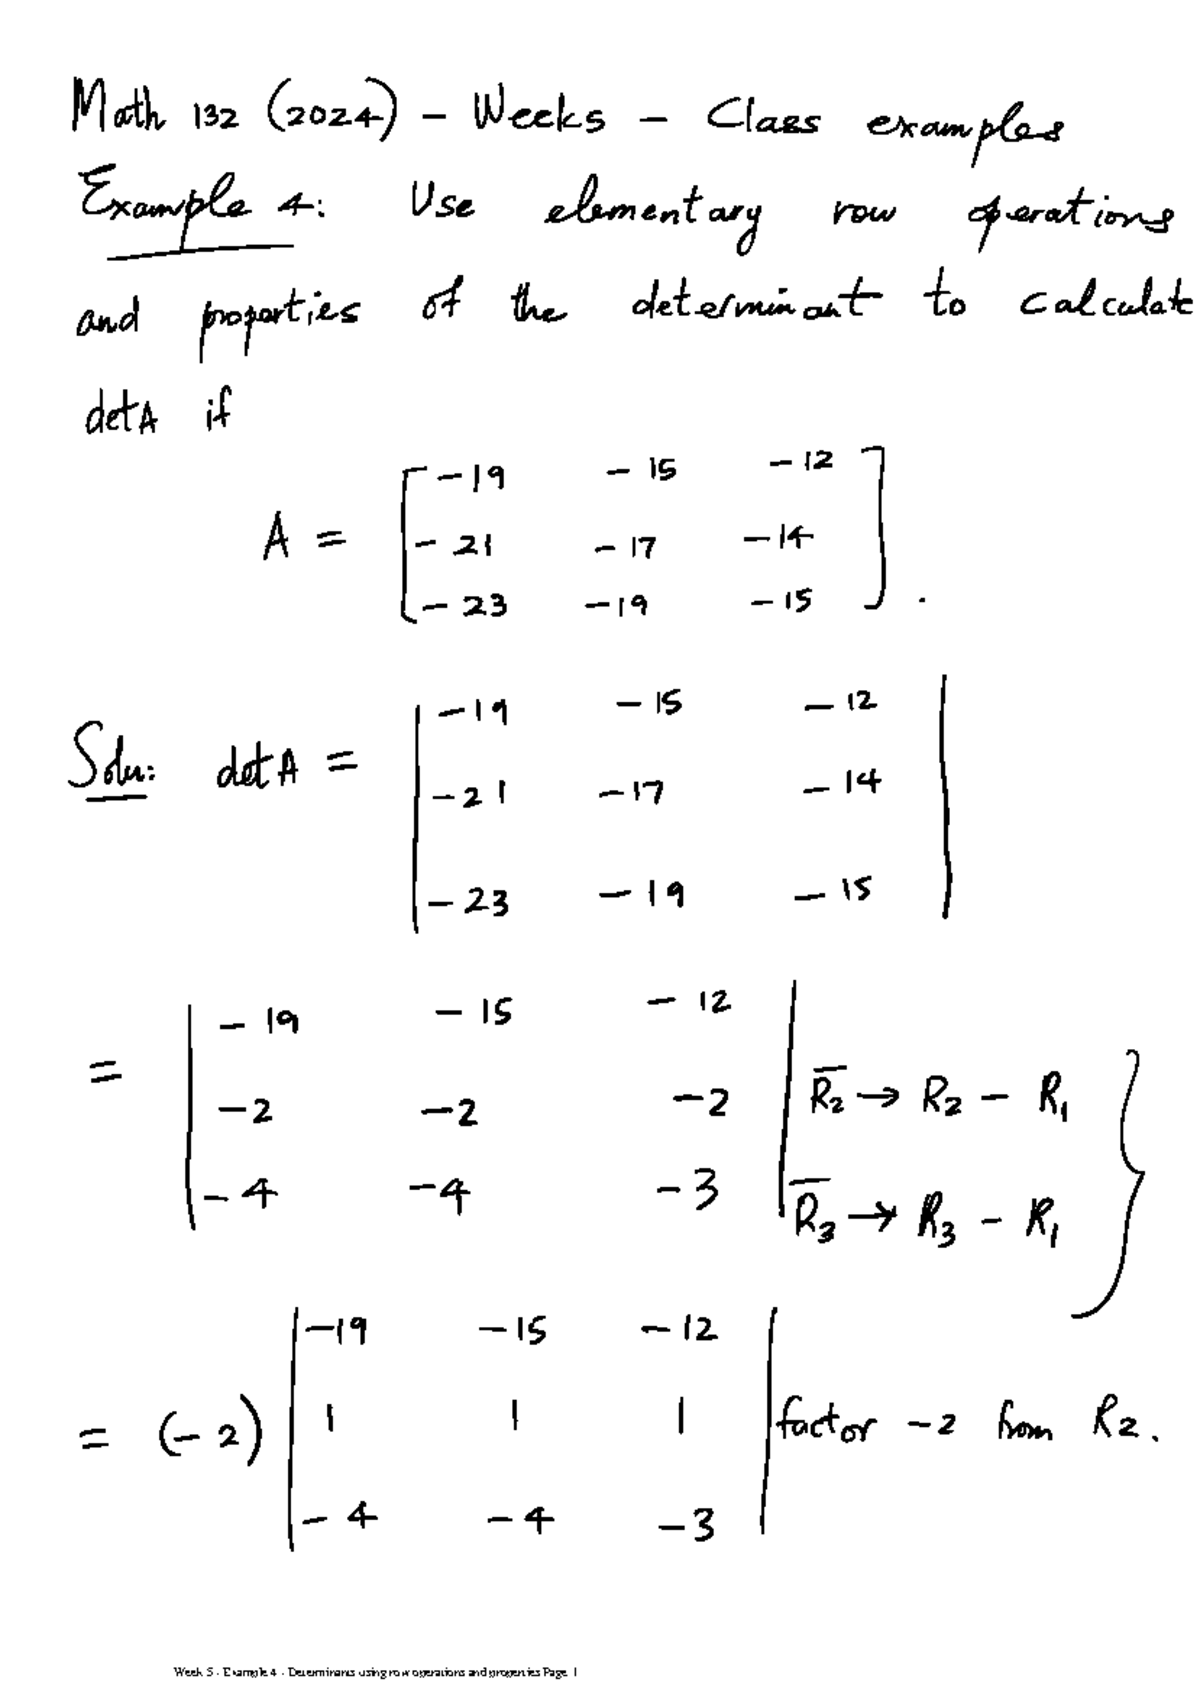 Math 132 (2024) – Week5 – Class examples
Example 4: Use elementary row operations
and properties of the determinant to calculate
det A if
A = [ -19 -15 -12
-21 -17 -14
-23 -19 -15 ] .
Soln: det A = | -19 -15 -12 |
| -21 -17 -14 |
| -23 -19 -15 |
= | -19 -15 -12 |
| -2 -2 -2 | R̅2 → R2 – R1 }
| -4 -4 -3 | R̅3 → R3 – R1
= (-2) | -19 -15 -12 |
| 1 1 1 | factor -2 from R2.
| -4 -4 -3 |
Week 5 - Example 4 - Determinants using row operations and properties Page 1